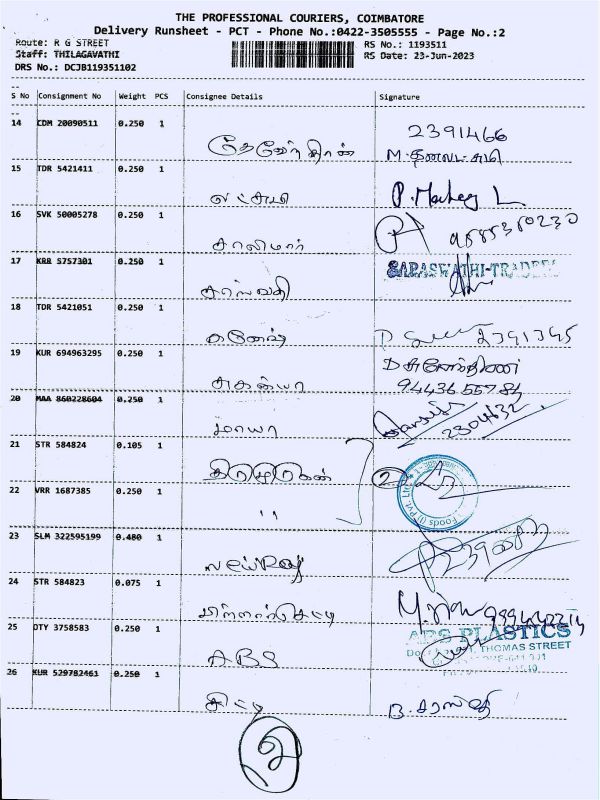 THE PROFESSIONAL COURIERS, COIMBATORE
Delivery Runsheet - PCT - Phone No.:0422-3505555 - Page No.:2
Route: R G STREET
RS No.: 1193511
Staff: THILAGAVATHI
RS Date: 23-Jun-2023
DRS No.: DCJB119351102
S No Consignment No Weight PCS Consignee Details Signature
14 CDM 20090511 0.250 1 2391466
15 TDR 5421411 0.250 1
லட்சுமி
16 SVK 50005278 0.250 1
சாலிமார்
17 KRR S757301 0.250 1 SARASWATHI-TRADERS
சரஸ்வதி
18 TDR 5421051 0.250 1
கணேஷ் 2391345
19 KUR 694963295 0.250 1
சுகன்யா 94436 55784
20 MAA 860228604 0.250 1
மாயா 2304632
21 STR 584824 0.105 1
திருமுருகன் 2
22 VRR 1687385 0.250 1 Foods (I) Pvt. Ltd
"
23 SLM 322595199 0.480 1
24 STR 584823 0.075 1
25 DTY 3758583 0.250 1 APS PLASTICS
THOMAS STREET
ABS
26 KUR 529782461 0.250 1
சிட்டி B. சரஸ்வதி